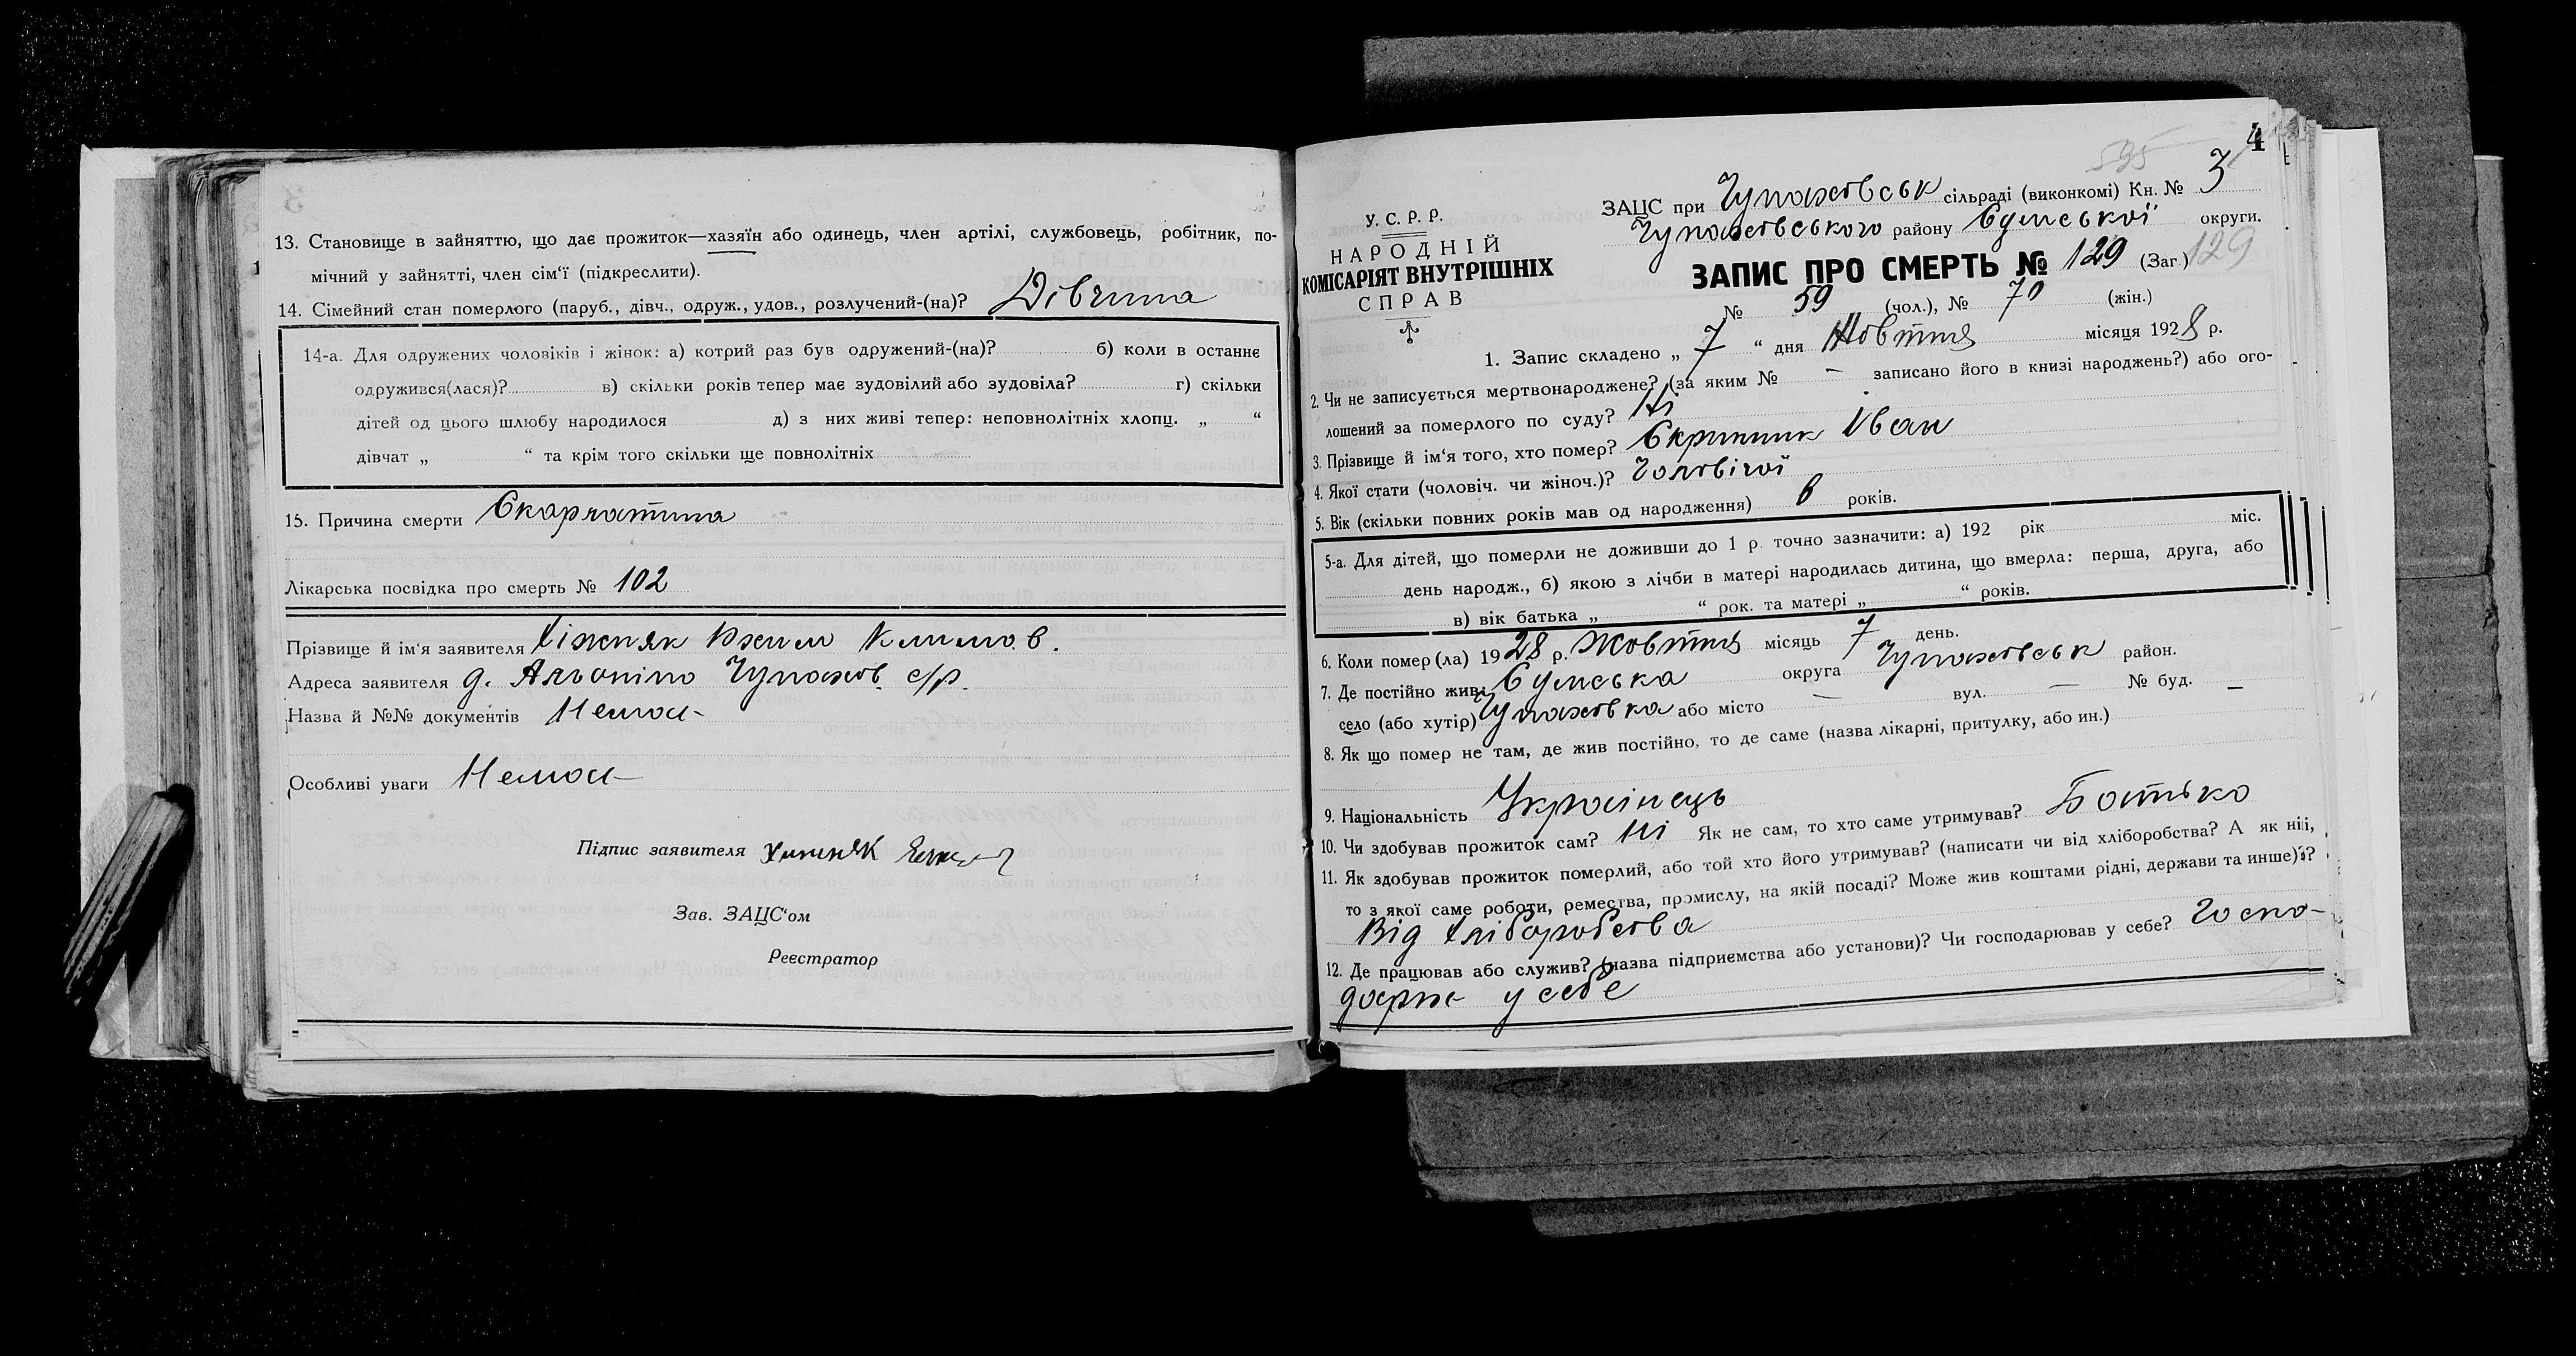 13. Становище в зайняттю, що дає прожиток—хазяїн або одинець, член артілі, службовець, робітник, по-
мічний у зайнятті, член сім'ї (підкреслити).
14. Сімейний стан померлого (паруб., дівч., одруж., удов., розлучений-(на)? Дівчина
14-а. Для одружених чоловіків і жінок: а) котрий раз був одружений-(на)? б) коли в останнє
одружився(лася)? в) скільки років тепер має зудовілий або зудовіла? г) скільки
дітей од цього шлюбу народилося д) з них живі тепер: неповнолітніх хлопц. „ “
дівчат „ “ та крім того скільки ще повнолітніх
15. Причина смерти Скарлатина
Лікарська посвідка про смерть № 102
Прізвище й ім'я заявителя Климов.
Адреса заявителя д. Чупахов. с/р.
Назва й №№ документів Немає
Особливі уваги Немає
Підпис заявителя
Зав. ЗАЦС'ом
Реєстратор
4
595
У. С. Р. Р.
НАРОДНІЙ
КОМІСАРІЯТ ВНУТРІШНІХ
СПРАВ
ЗАЦС при Чупаховськ сільраді (виконкомі) Кн. № 3
Чупаховського району Сумської округи.
ЗАПИС ПРО СМЕРТЬ № 129 (Заг.) 129
№ 59 (чол.), № 70 (жін.)
1. Запис складено „ 7 “ дня Жовтня місяця 1928 р.
2. Чи не записується мертвонароджене? (за яким № — записано його в книзі народжень?) або ого-
лошений за померлого по суду? Ні
3. Прізвище й ім'я того, хто помер? Скрипник Іван
4. Якої стати (чоловіч. чи жіноч.)? Чоловічої
5. Вік (скільки повних років мав од народження) 6 років.
5-а. Для дітей, що померли не доживши до 1 р. точно зазначити: а) 192 рік міс.
день народж., б) якою з лічби в матері народилась дитина, що вмерла: перша, друга, або
в) вік батька „ “ рок. та матері „ “ років.
6. Коли помер (ла) 1928 р. Жовтня місяць 7 день.
7. Де постійно жив Сумська округа Чупаховськ район.
село (або хутір) Чупаховка або місто — вул. — № буд. —
8. Як що помер не там, де жив постійно, то де саме (назва лікарні, притулку, або ин.)
9. Національність Українець
10. Чи здобував прожиток сам? Ні Як не сам, то хто саме утримував? Батько
11. Як здобував прожиток померлий, або той хто його утримував? (написати чи від хліборобства? А як ніі,
то з якої саме роботи, ремества, промислу, на якій посаді? Може жив коштами рідні, держави та инше)?
Від хліборобства
12. Де працював або служив? (назва підприємства або установи)? Чи господарював у себе? Госпо-
дарює у себе